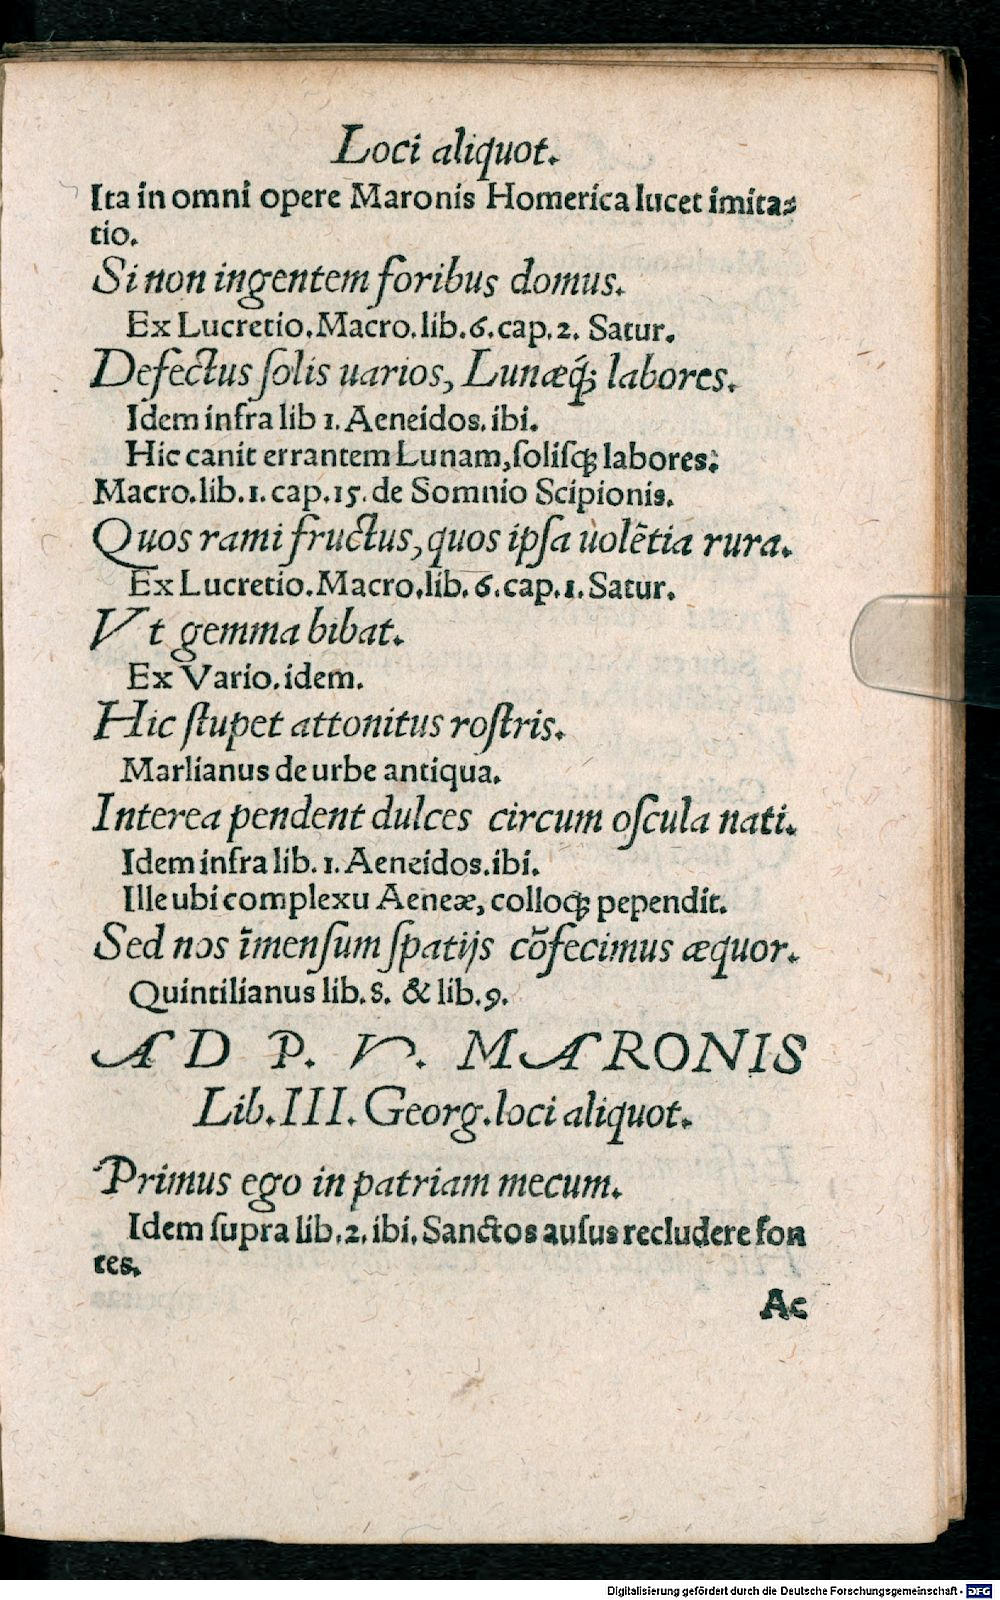 Loci aliquot.
Ita in omni opere Maronis Homerica lucet imita⸗
tio.
Si non ingentem foribus domus.
Ex Lucretio. Macro. lib. 6. cap. 2. Satur.
Defectus ſolis uarios, Lunæq́; labores.
Idem infra lib 1. Aeneidos. ibi.
Hic canit errantem Lunam, ſolisq; labores:
Macro. lib. 1. cap. 15. de Somnio Scipionis.
Quos rami fructus, quos ipſa uolẽtia rura.
Ex Lucretio. Macro. lib. 6. cap. 1. Satur.
Vt gemma bibat.
Ex Vario. idem.
Hic ſtupet attonitus roſtris.
Marlianus de urbe antiqua.
Interea pendent dulces circum oſcula nati.
Idem infra lib. 1. Aeneidos. ibi.
Ille ubi complexu Aeneæ, colloq; pependit.
Sed nos ĩmenſum ſpatijs cõfecimus æquor.
Quintilianus lib. 8. & lib. 9.
AD P. V. MARONIS
Lib. III. Georg. loci aliquot.
Primus ego in patriam mecum.
Idem ſupra lib. 2. ibi. Sanctos auſus recludere fon
tes.
Ac
Digitalisierung gefördert durch die Deutsche Forschungsgemeinschaft - DFG